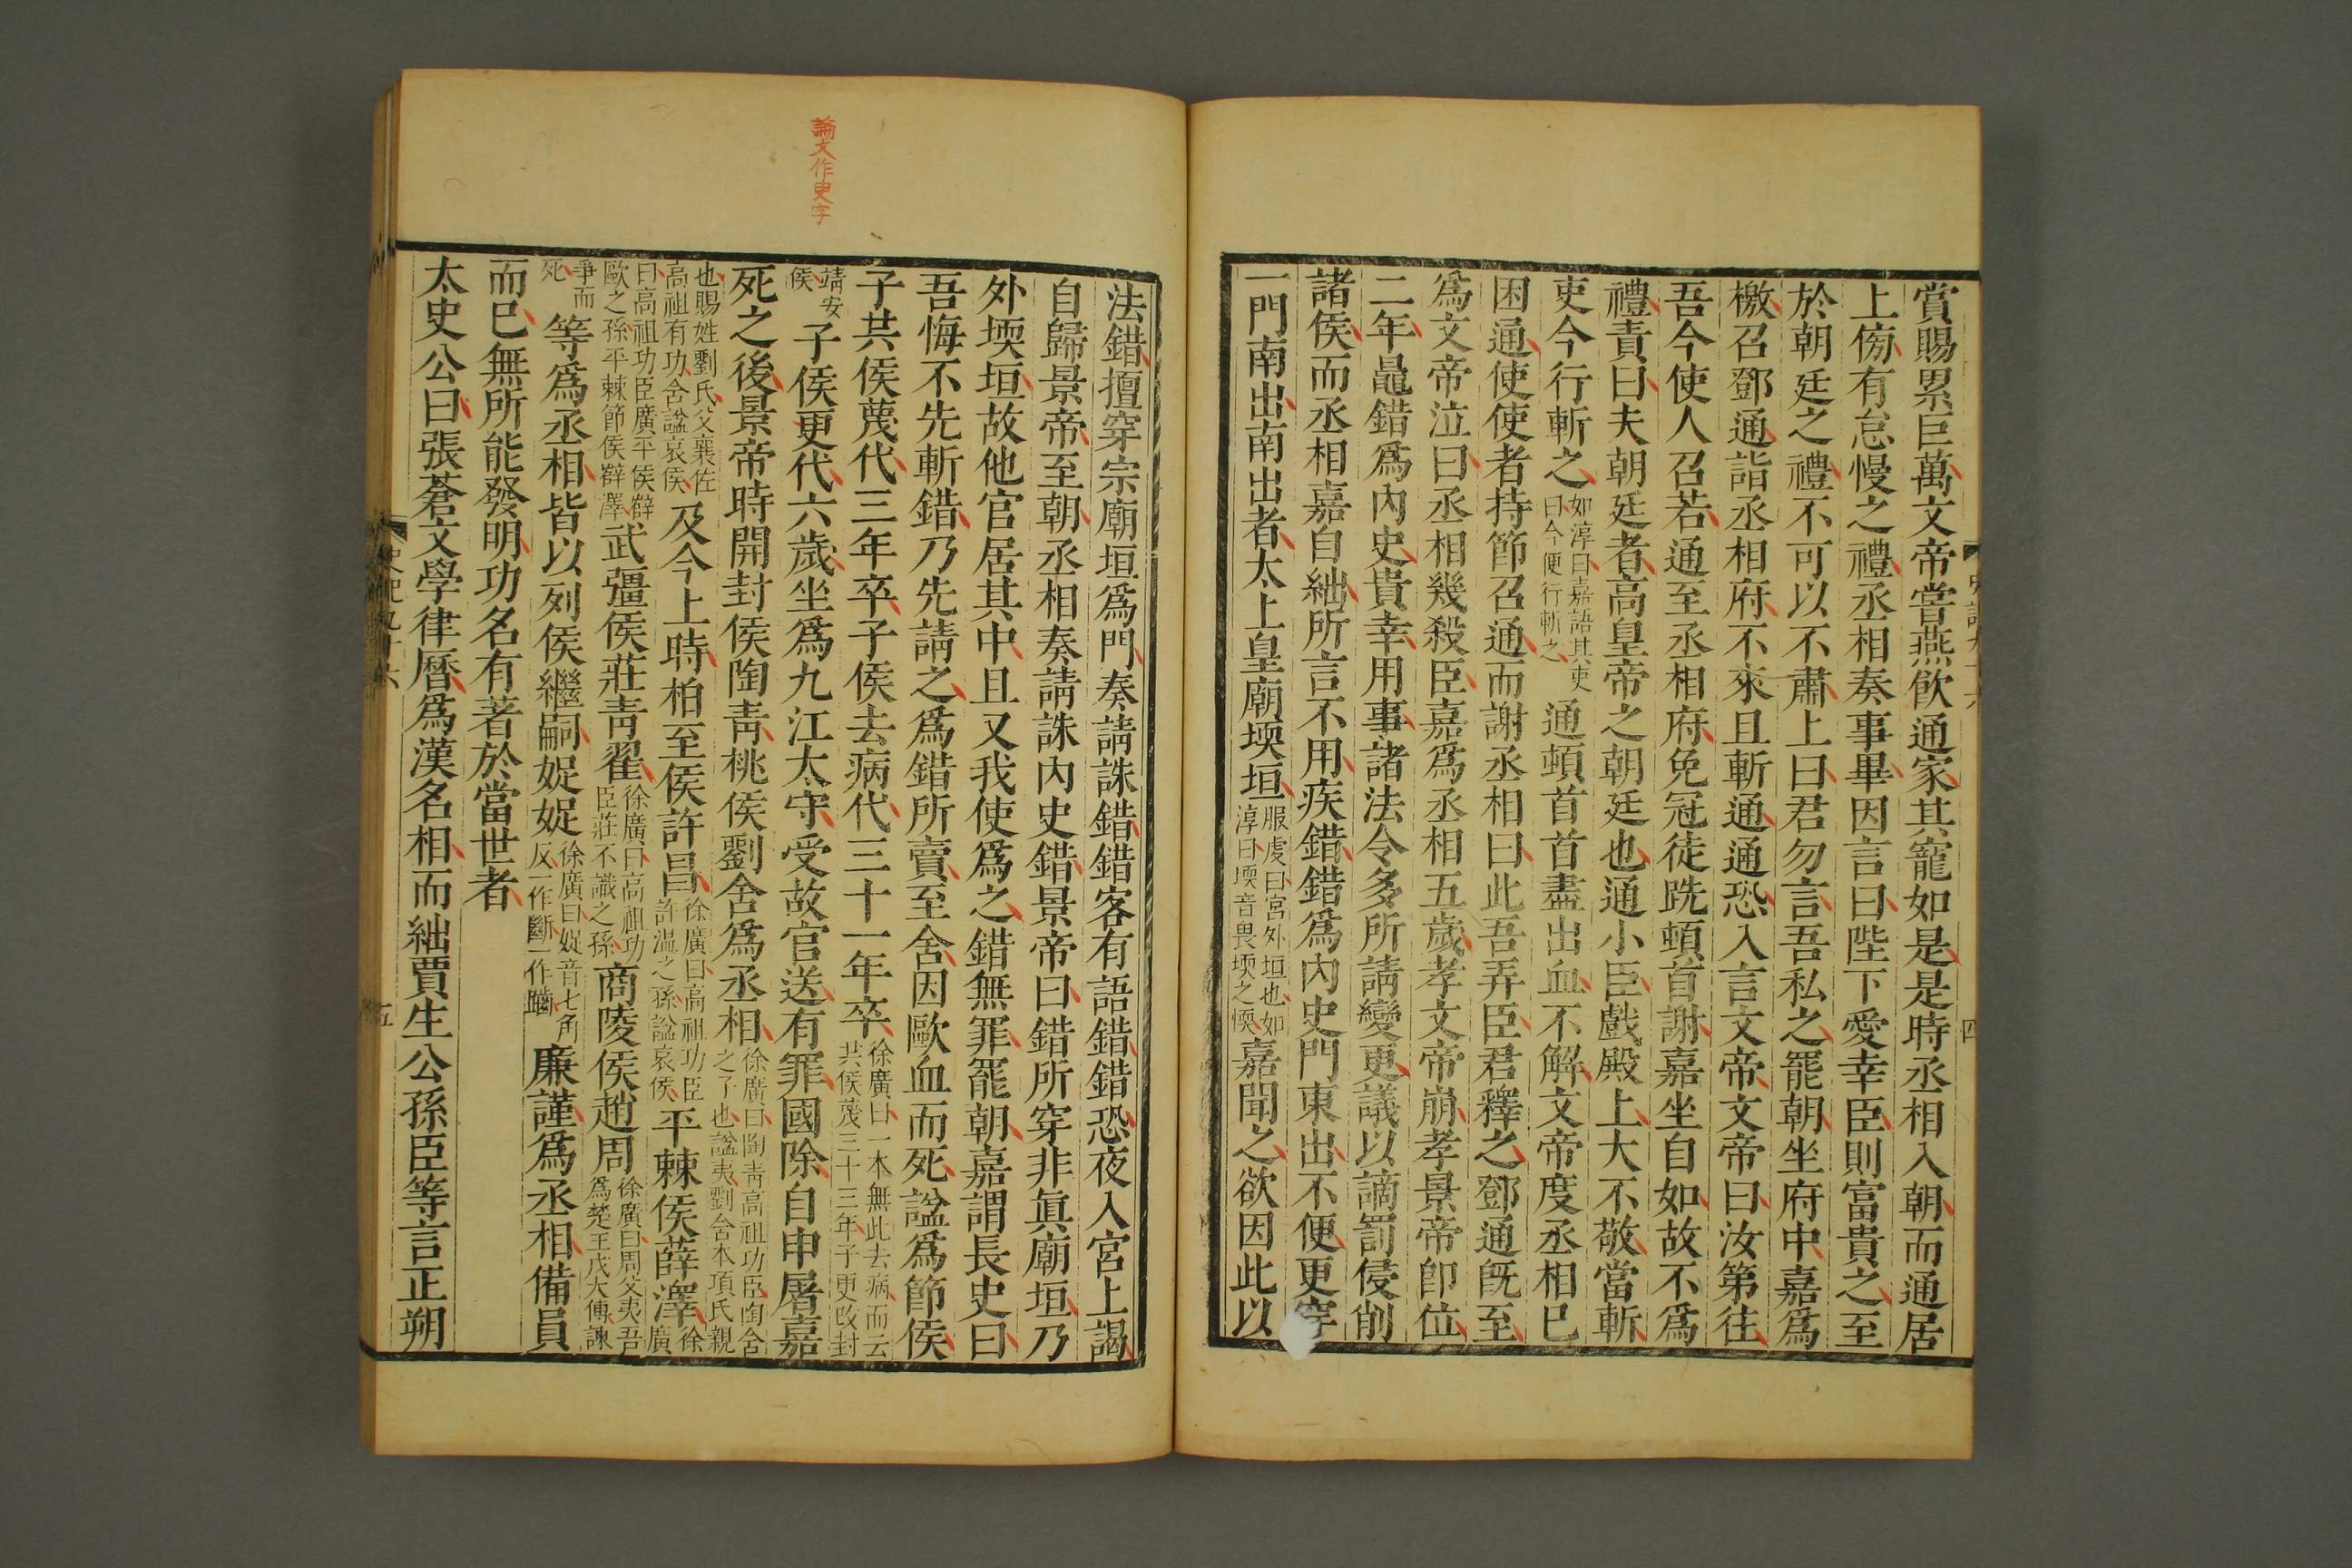 賞賜累巨萬文帝嘗燕飲通家其寵如是是時丞相入朝而通居
上傍有怠慢之禮丞相奏事畢因言曰陛下愛幸臣則富貴之至
於朝廷之禮不可以不肅上曰君勿言吾私之罷朝坐府中嘉爲
檄召鄧通詣丞相府不來且斬通通恐入言文帝文帝曰汝第往
吾今使人召若通至丞相府免冠徒跣頓首謝嘉坐自如故不爲
禮責曰夫朝廷者高皇帝之朝廷也通小臣戲殿上大不敬當斬
吏今行斬之如淳曰嘉語其吏曰今便行斬之通頓首首盡出血不解文帝度丞相已
困通使使者持節召通而謝丞相曰此吾弄臣君釋之鄧通旣至
爲文帝泣曰丞相幾殺臣嘉爲丞相五歲孝文帝崩孝景帝卽位
二年鼂錯爲內史貴幸用事諸法令多所請變更議以謫罰侵削
諸侯而丞相嘉自絀所言不用疾錯錯爲內史門東出不便更穿
一門南出南出者太上皇廟堧垣服虔曰宮外垣也如淳曰堧音畏堧之愞嘉聞之欲因此以
史記九十六
四
法錯擅穿宗廟垣爲門奏請誅錯錯客有語錯錯恐夜入宮上謁
自歸景帝至朝丞相奏請誅內史錯景帝曰錯所穿非眞廟垣乃
外堧垣故他官居其中且又我使爲之錯無罪罷朝嘉謂長史曰
吾悔不先斬錯乃先請之爲錯所賣至舍因歐血而死諡爲節侯
子共侯蔑代三年卒子侯去病代三十一年卒徐廣曰一本無此去病而云共侯蔑三十三年子更改封
靖安侯子侯更代六歲坐爲九江太守受故官送有罪國除自申屠嘉
死之後景帝時開封侯陶靑桃侯劉舍爲丞相徐廣曰陶靑高祖功臣陶舍之子也諡夷劉舍本項氏親
也賜姓劉氏父襄佐高祖有功舍諡哀侯及今上時柏至侯許昌徐廣曰高祖功臣許溫之孫諡哀侯平棘侯薛澤徐廣
曰高祖功臣廣平侯薛歐之孫平棘節侯薛澤武彊侯莊靑翟徐廣曰高祖功臣莊不識之孫商陵侯趙周徐廣曰周父夷吾爲楚王戊大傅諫
爭而死等爲丞相皆以列侯繼嗣娖娖徐廣曰娖音七角反一作斷一作齪廉謹爲丞相備員
而已無所能發明功名有著於當世者
太史公曰張蒼文學律曆爲漢名相而絀賈生公孫臣等言正朔
史記九十六
五
論文作叓字